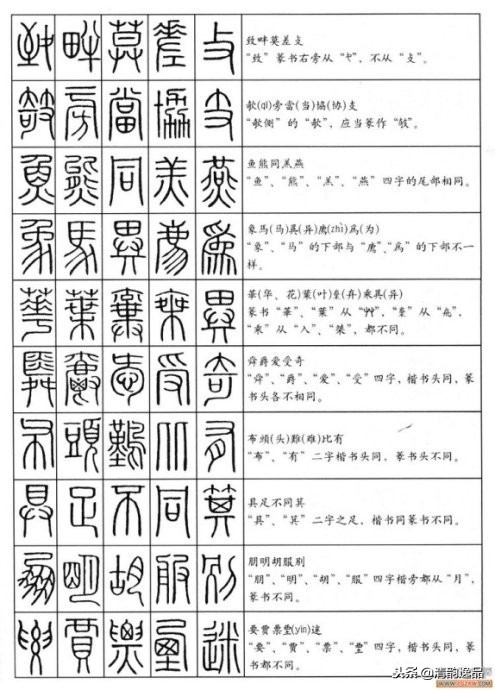 致畔莫差攴
“致”篆书右旁从“夂”，不从“攴”。
欹(qī)旁當(当)協(协)支
“欹侧”的“欹”，应当篆作“攲”。
鱼熊同羔燕
“鱼”、“熊”、“羔”、“燕”四字的尾部相同。
象馬(马)異(异)廌(zhì)爲(为)
“象”、“马”的下部与“廌”、“爲”的下部不一
样。
華(华、花)葉(叶)棄(弃)乘異(异)
篆书“華”、“葉”从“艸”，“棄”从“𠫓”，
“乘”从“入”、“桀”，都不同。
舜爵爱受奇
“舜”、“爵”、“爱”、“受”四字，楷书头同，篆
书头各不相同。
布頭(头)難(难)比有
“布”、“有”二字楷书头同，篆书头不同。
具足不同其
“具”、“其”二字之足，楷书同篆书不同。
朋明胡服别
“朋”、“明”、“胡”、“服”四字楷旁都从“月”，
篆书不同。
要賈票垔(yīn)迷
“要”、“賈”、“票”、“垔”四字，楷书头同，篆
书都不同。
头条@清韵逸品